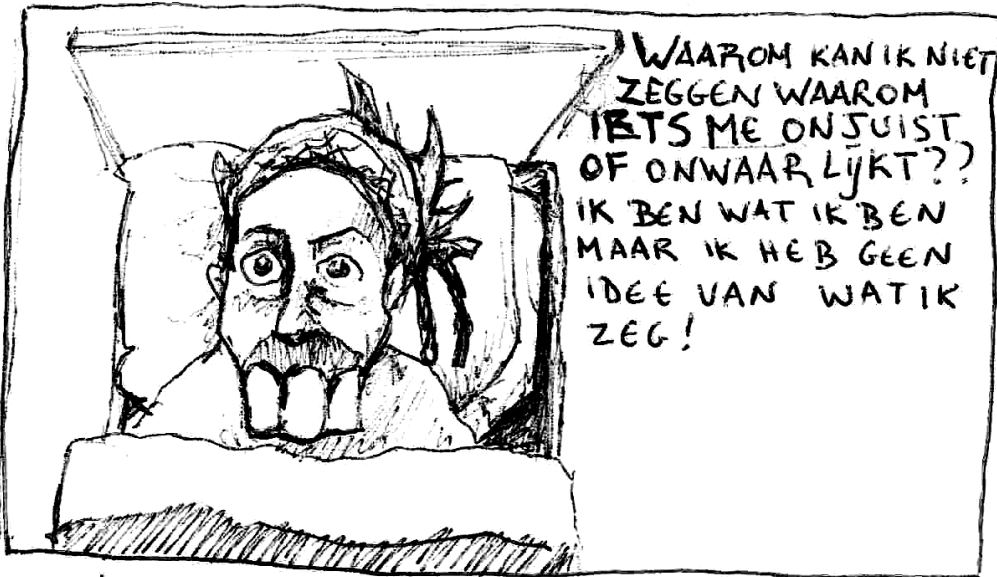 WAAROM KAN IK NIET
ZEGGEN WAAROM
IETS ME ONJUIST
OF ONWAAR LIJKT??
IK BEN WAT IK BEN
MAAR IK HEB GEEN
IDEE VAN WAT IK
ZEG!